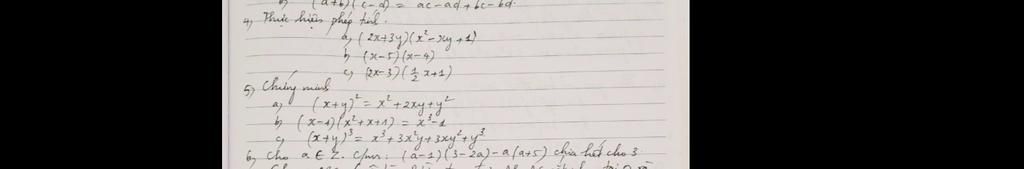 b) (a+b)(c-d) = ac-ad+bc-bd.
4) Thực hiện phép tính.
a) (2x+3y)(x²-xy+1)
b) (x-5)(x-4)
c) (2x-3)(½x+1)
5) Chứng minh
a) (x+y)² = x²+2xy+y²
b) (x-1)(x²+x+1) = x³-1
c) (x+y)³ = x³+3x²y+3xy²+y³
6) Cho a ∈ Z. C/mr: (a-1)(3-2a)-a(a+5) chia hết cho 3